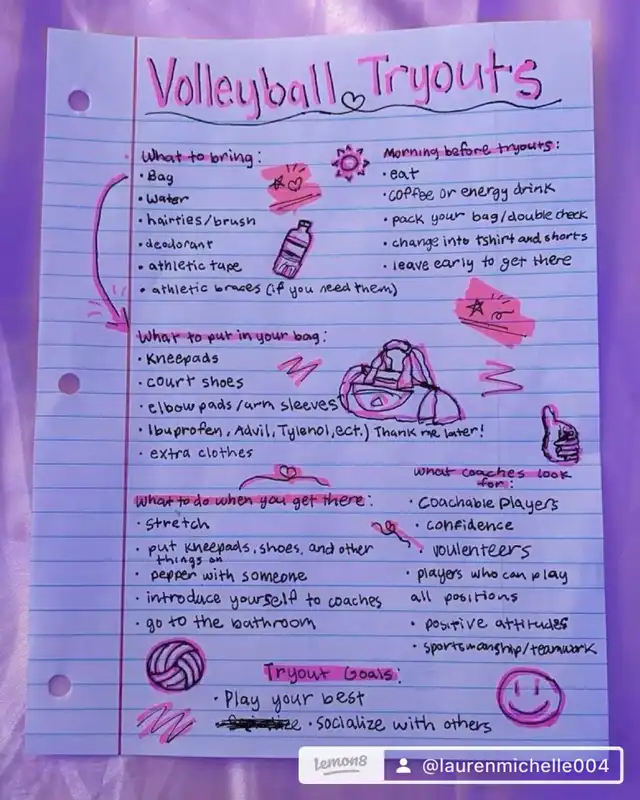 Volleyball Tryouts
What to bring:
• Bag
• Water
• hairties/brush
• deodorant
• athletic tape
• athletic braces (if you need them)
Morning before tryouts:
• eat
• coffee or energy drink
• pack your bag/double check
• change into tshirt and shorts
• leave early to get there
What to put in your bag:
• Kneepads
• court shoes
• elbow pads/arm sleeves
• Ibuprofen, Advil, Tylenol, ect.) Thank me later!
• extra clothes
What to do when you get there:
• Stretch
• put kneepads, shoes, and other
things on
• pepper with someone
• introduce yourself to coaches
• go to the bathroom
What coaches look
for:
• Coachable Players
• confidence
• voulenteers
• players who can play
all positions
• positive attitudes
• sportsmanship/teamwork
Tryout Goals:
• Play your best
• socialize with others
Lemon8 @laurenmichelle004